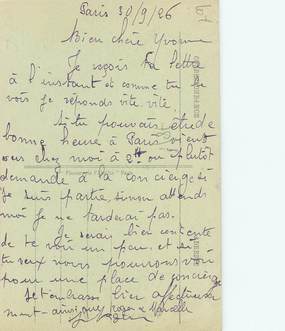 Paris 30/9/26
Bien chère Yvonne
Je reçois ta lettre
à l'instant et comme tu
vois je réponds vite vite.
Si tu pouvais être de
bonne heure à Paris viens
chez moi à 2 ou plutôt
demande à la concierge si
je suis partie sinon attends
moi je ne tarderai pas.
Je serais bien contente
de te voir un peu et si
tu veux nous pourrons voir
pour une place de concierge
Je t'embrasse bien affectueuse
ment ainsi que Roger Marcelle